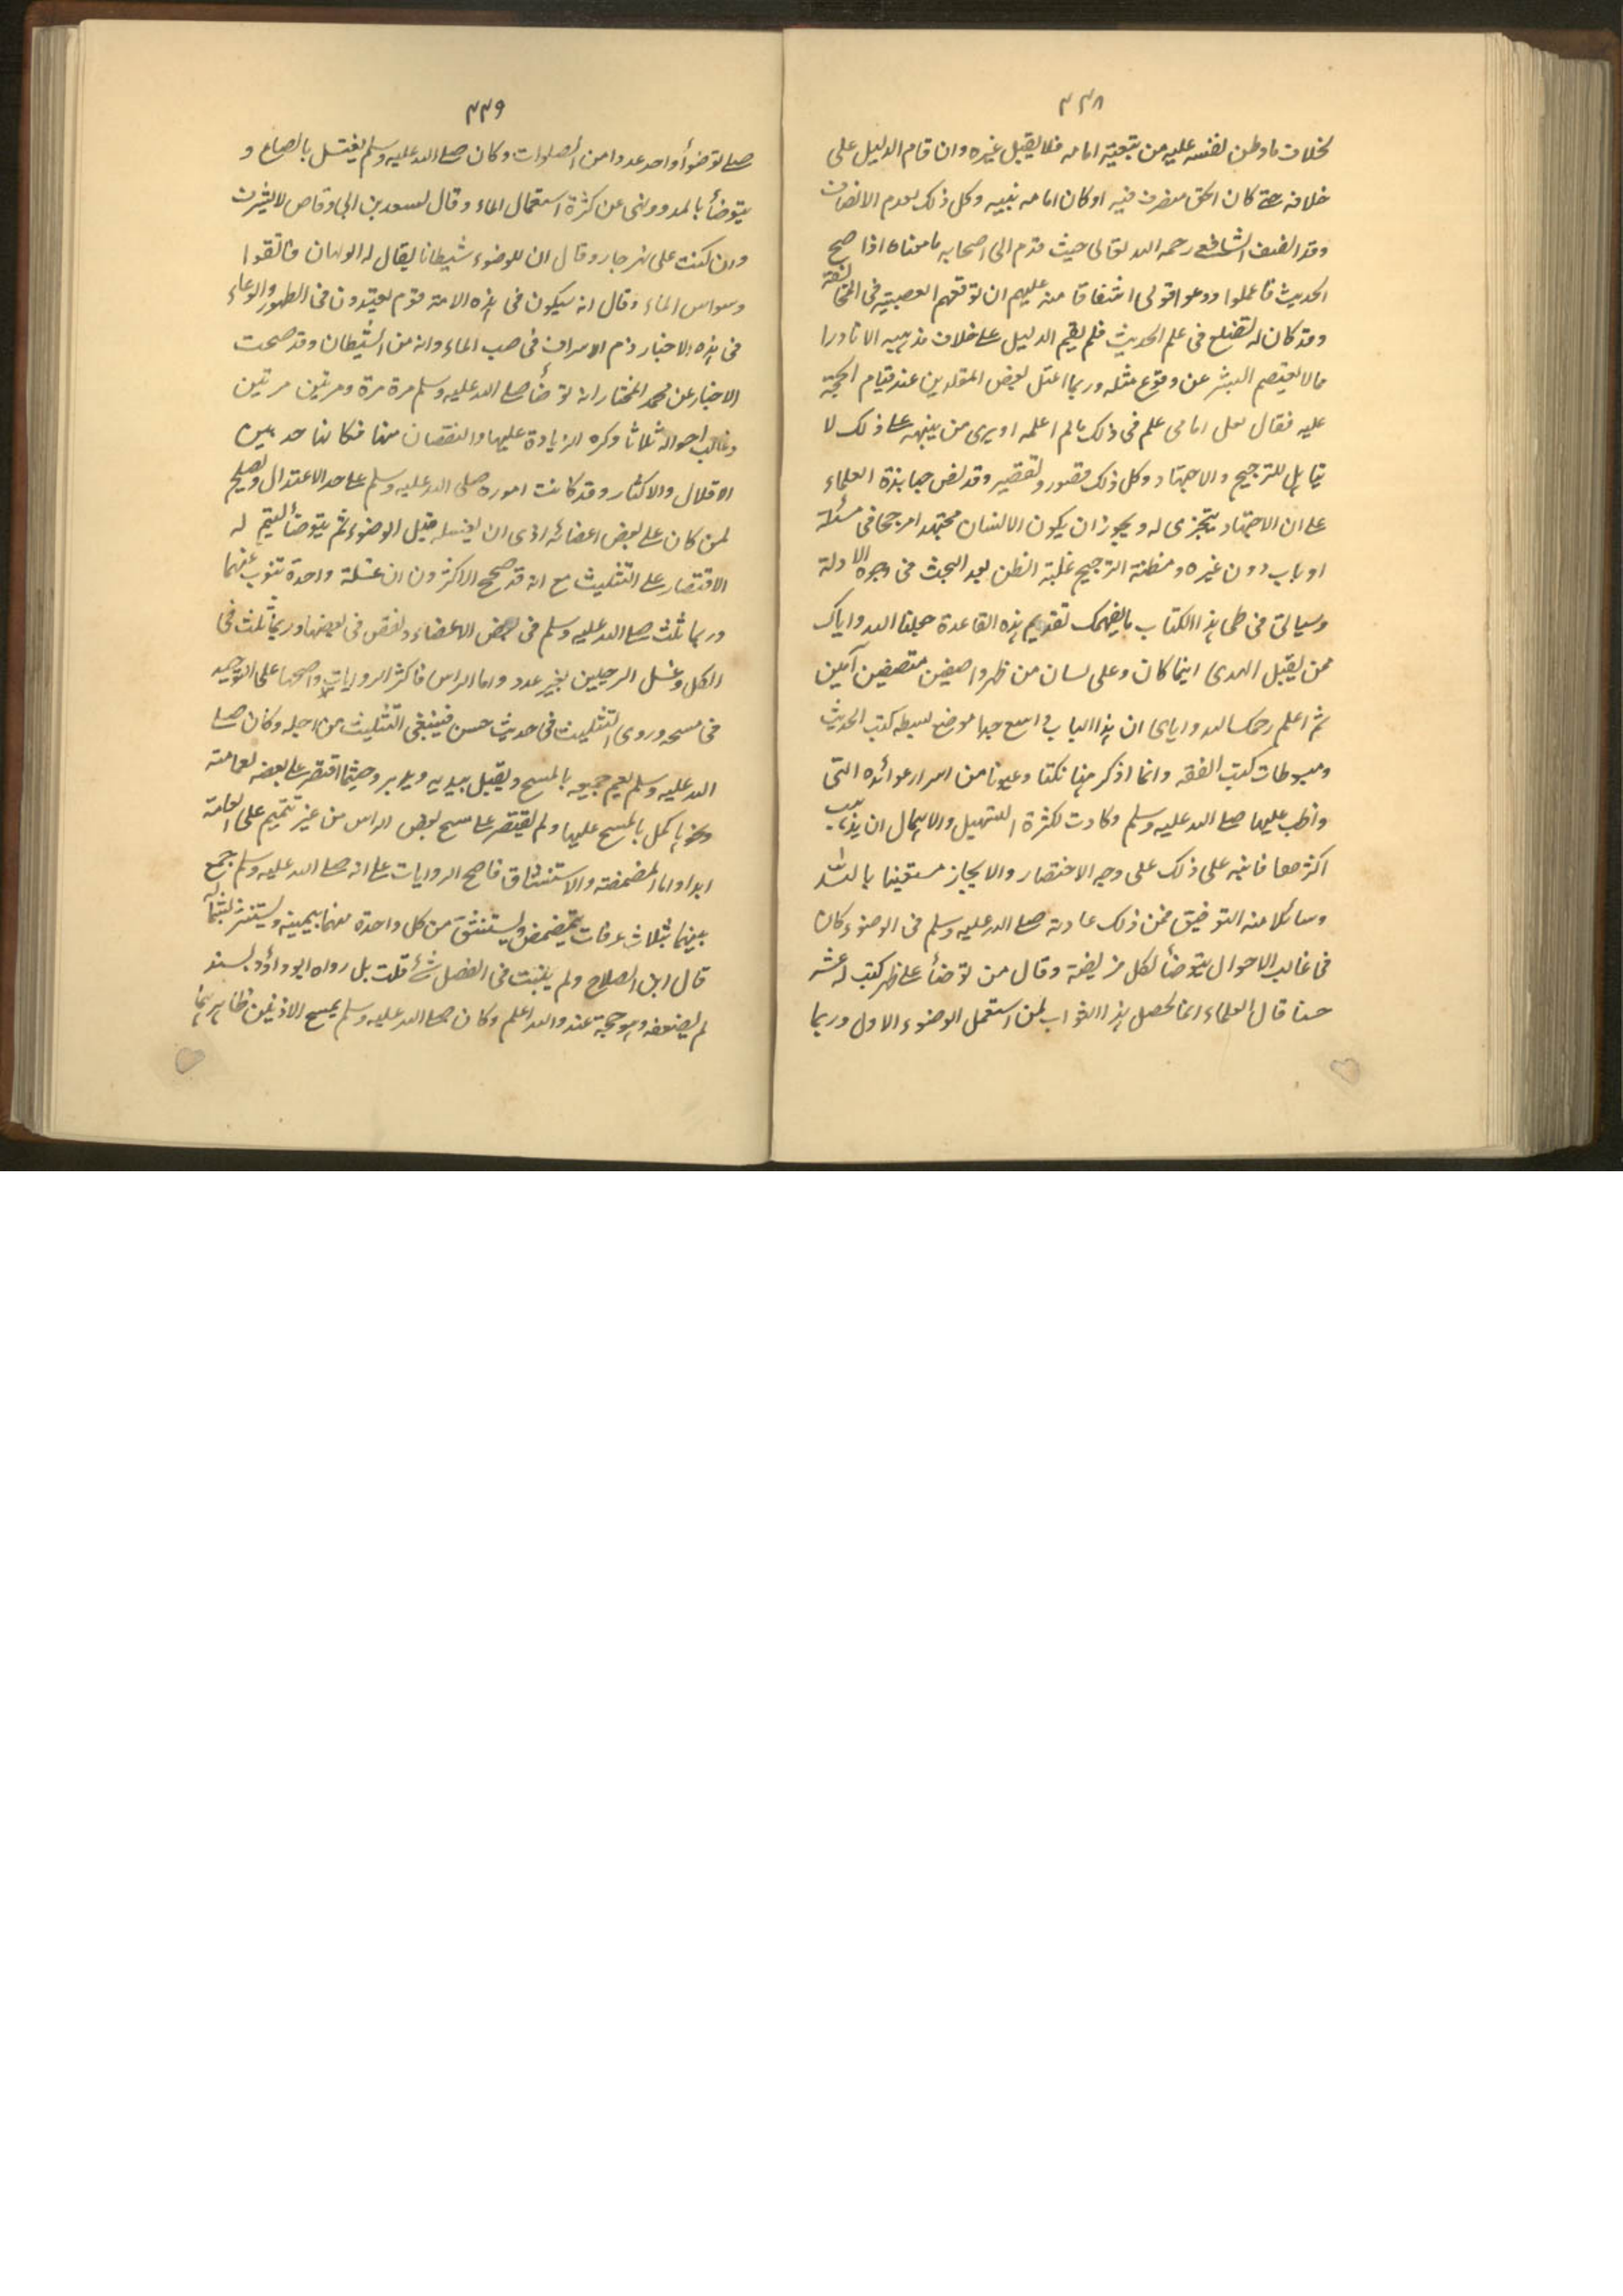 ٣٣٨
بخلاف ما وطن نفسه عليه من تبعية امامه فلا يقبل غيره وان قام الدليل على
خلافه حتى كان الحق منصرف فيه او كان امامه نبيه وكل ذلك لعدم الانصاف
وقد انصف الشافعي رحمه الله تعالى حيث قدم الى اصحابه ما معناه اذا صح
الحديث فاعملوا ودعوا قولي اشفاقا منه عليهم ان توقعهم العصبية في المخالفة
وقد كان له تضلع في علم الحديث فلم يقم الدليل على خلاف مذهبه الا نادرا
مما لا يعتصم البشر عن وقوع مثله وربما اعتل بعض المقلدين عند قيام الحجة
عليه فقال لعل امامي علم في ذلك ما لم اعلمه او يرى من ينبهه على ذلك لا
يتاهل للترجيح والاجتهاد وكل ذلك قصور وتقصير وقد نص جهابذة العلماء
على ان الاجتهاد يتجزى له ويجوز ان يكون الانسان مجتهدا مرجحا في مسئلة
او باب دون غيره ومظنة الترجيح غلبة الظن بعد البحث في وجوه الادلة
وسياتي في طي هذا الكتاب ما يفهمك تقديم هذه القاعدة جعلنا الله واياك
ممن يقبل الهدى اينما كان وعلى لسان من ظهر واصفين متصفين آمين
ثم اعلم رحمك الله واياي ان هذا الباب واسع جدا موضع بسطه كتب الحديث
ومبسوطات كتب الفقه وانما اذكر هنا نكتا وعيونا من اسرار عوائده التي
واظب عليها صلى الله عليه وسلم وكادت لكثرة التسهيل والاهمال ان يذهب
اكثرها فانبه على ذلك على وجه الاختصار والايجاز مستعينا بالله
وسائلا منه التوفيق فمن ذلك عادته صلى الله عليه وسلم في الوضوء كان
في غالب الاحوال يتوضأ لكل فريضة وقال من توضأ على طهر كتب له عشر
حسنا قال العلماء انما يحصل هذا الثواب لمن استعمل الوضوء الاول وربما
٣٣٩
صلى توضوأ واحد عددا من الصلوات وكان صلى الله عليه وسلم يغتسل بالصاع و
يتوضأ بالمد ونهى عن كثرة استعمال الماء وقال لسعد بن ابي وقاص لا تسرف
وان كنت على نهر جار وقال ان للوضوء شيطانا يقال له الولهان فاتقوا
وسواس الماء وقال انه سيكون في هذه الامة قوم يعتدون في الطهور والدعاء
في هذه الاخبار ذم الاسراف في صب الماء وانه من الشيطان وقد صحت
الاخبار عن محمد المختار انه توضأ صلى الله عليه وسلم مرة مرة ومرتين مرتين
وغالب احواله ثلاثا وكره الزيادة عليها والنقصان منها فكانتا حد بين
الاقلال والاكثار وقد كانت اموره صلى الله عليه وسلم على حد الاعتدال ويصلح
لمن كان على بعض اعضائه اذى ان يغسله قبل الوضوء ثم يتوضأ ليتم له
الاقتصار على التثليث مع انه قد صحح الاكثرون ان غسلة واحدة تنوب عنهما
وربما ثلث صلى الله عليه وسلم في بعض الاعضاء ونقص في بعضها وربما ثلث في
الكل وغسل الرجلين بغير عدد واما الراس فاكثر الروايات واصحها على التوحيد
في مسحه وروى التثليث في حديث حسن فينبغي التثليث من اجله وكان صلى
الله عليه وسلم يعم جميعه بالمسح ويقبل بيديه ويدبر وحيثما اقتصر على بعضه لعمامته
ونحوها كمل بالمسح عليها ولم يقتصر على مسح بعض الراس من غير تتميم على العمامة
ابدا واما المضمضة والاستنشاق فاصح الروايات على انه صلى الله عليه وسلم جمع
بينهما بثلاث غرفات يتمضمض ويستنشق من كل واحدة منهما بيمينه ويستنثر بشماله
قال ابن الصلاح ولم يثبت في الفصل شئ قلت بل رواه ابو داؤد بسند
لم يضعفه وهو حجة عنده والله اعلم وكان صلى الله عليه وسلم يمسح الاذنين ظاهرهما